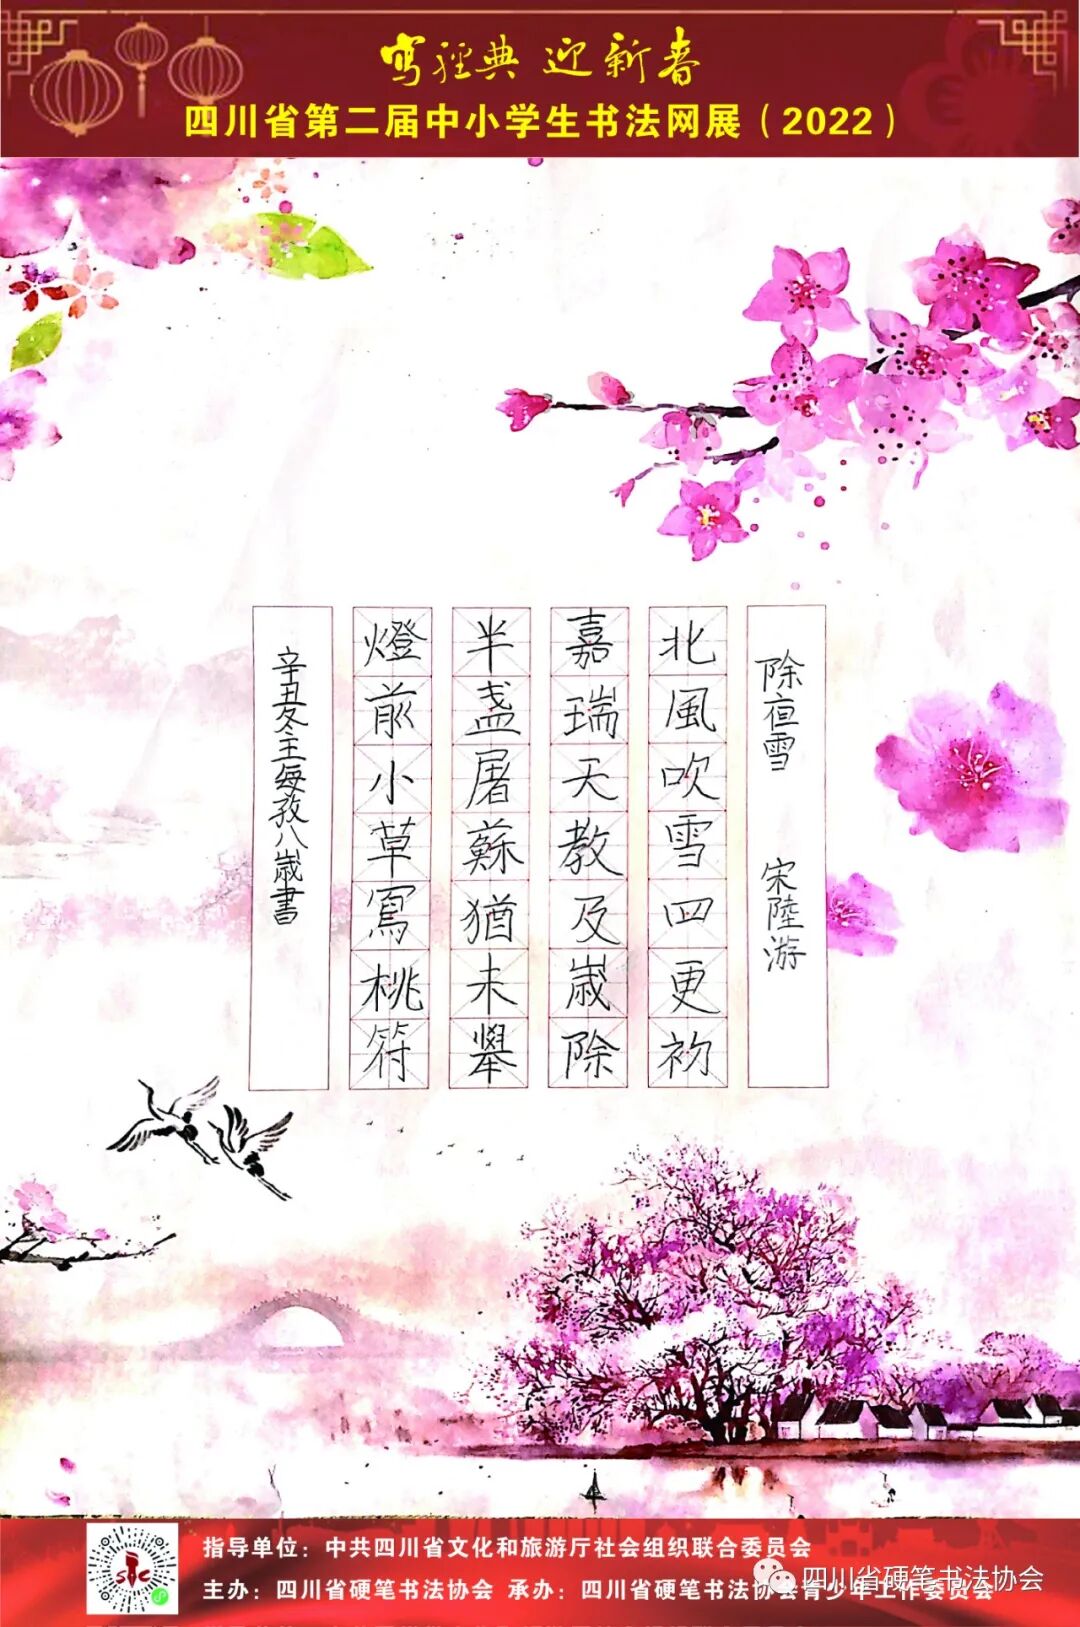 写經典 迎新春
四川省第二届中小学生书法网展（2022）
除夜雪 宋陸游
北風吹雪四更初
嘉瑞天教及歲除
半盞屠蘇猶未舉
燈前小草寫桃符
辛丑冬王每孜八歲書
指导单位：中共四川省文化和旅游厅社会组织联合委员会
主办：四川省硬笔书法协会 承办：四川省硬笔书法协会青少年工作委员会
四川省硬笔书法协会